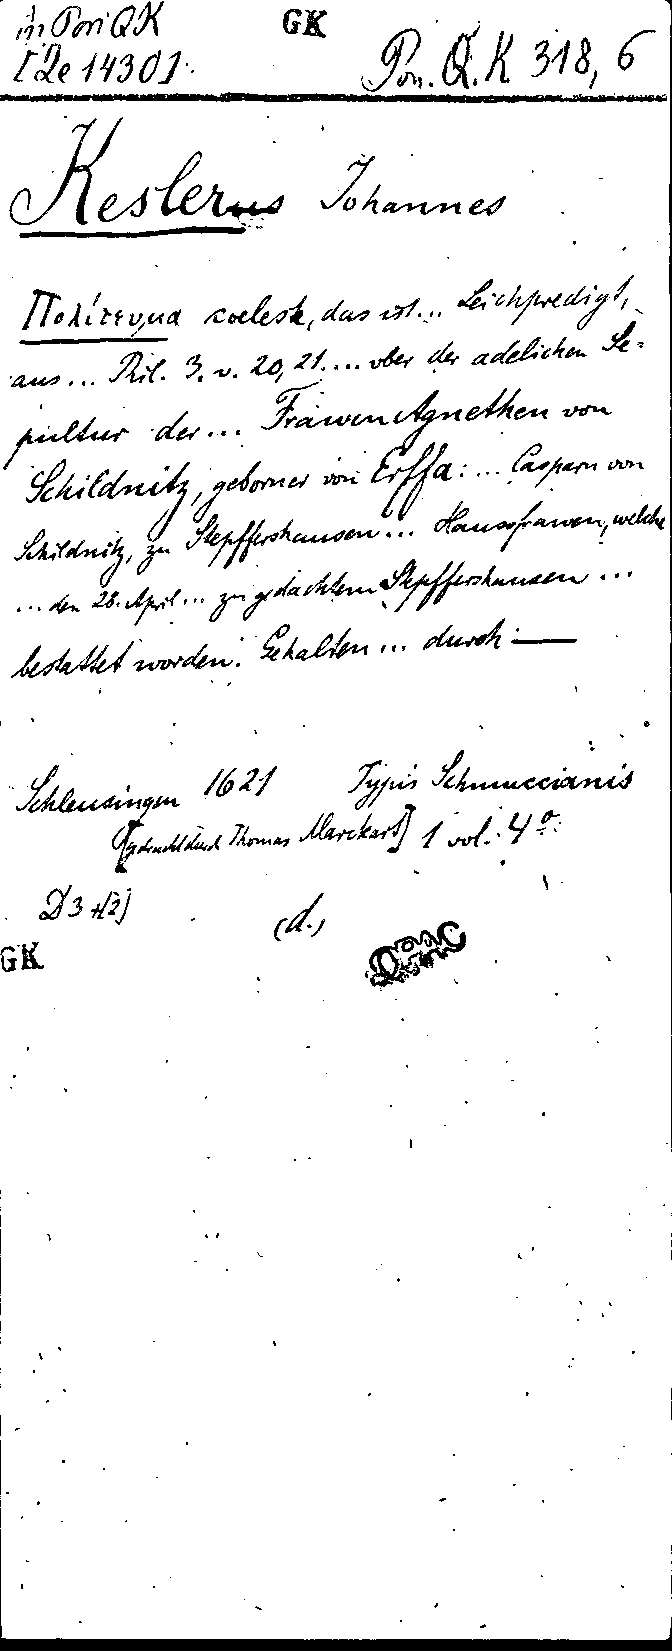 in Pon QK GK
[Ze 1430]. Pon. Q.K 318, 6
Keslerus Johannes
Πολίτευμα coeleste, das ist... Leichpredigt,
aus... Phil. 3. v. 20, 21.... vber der adelichen Se-
pultur der... Frawen Agnethen von
Schildnitz, geborner von Erffa:... Casparn von
Schildnitz, zu Stepffershausen... Haussfrawen, welche
... den 28. April... zu gedachtem Stepffershausen...
bestattet worden. Gehalten... durch —
Schleusingen 1621 Typis Schmuccianis
[gedruckt durch Thomas Marckart] 1 vol. 4°.
D3 +[2] (d.)
GK